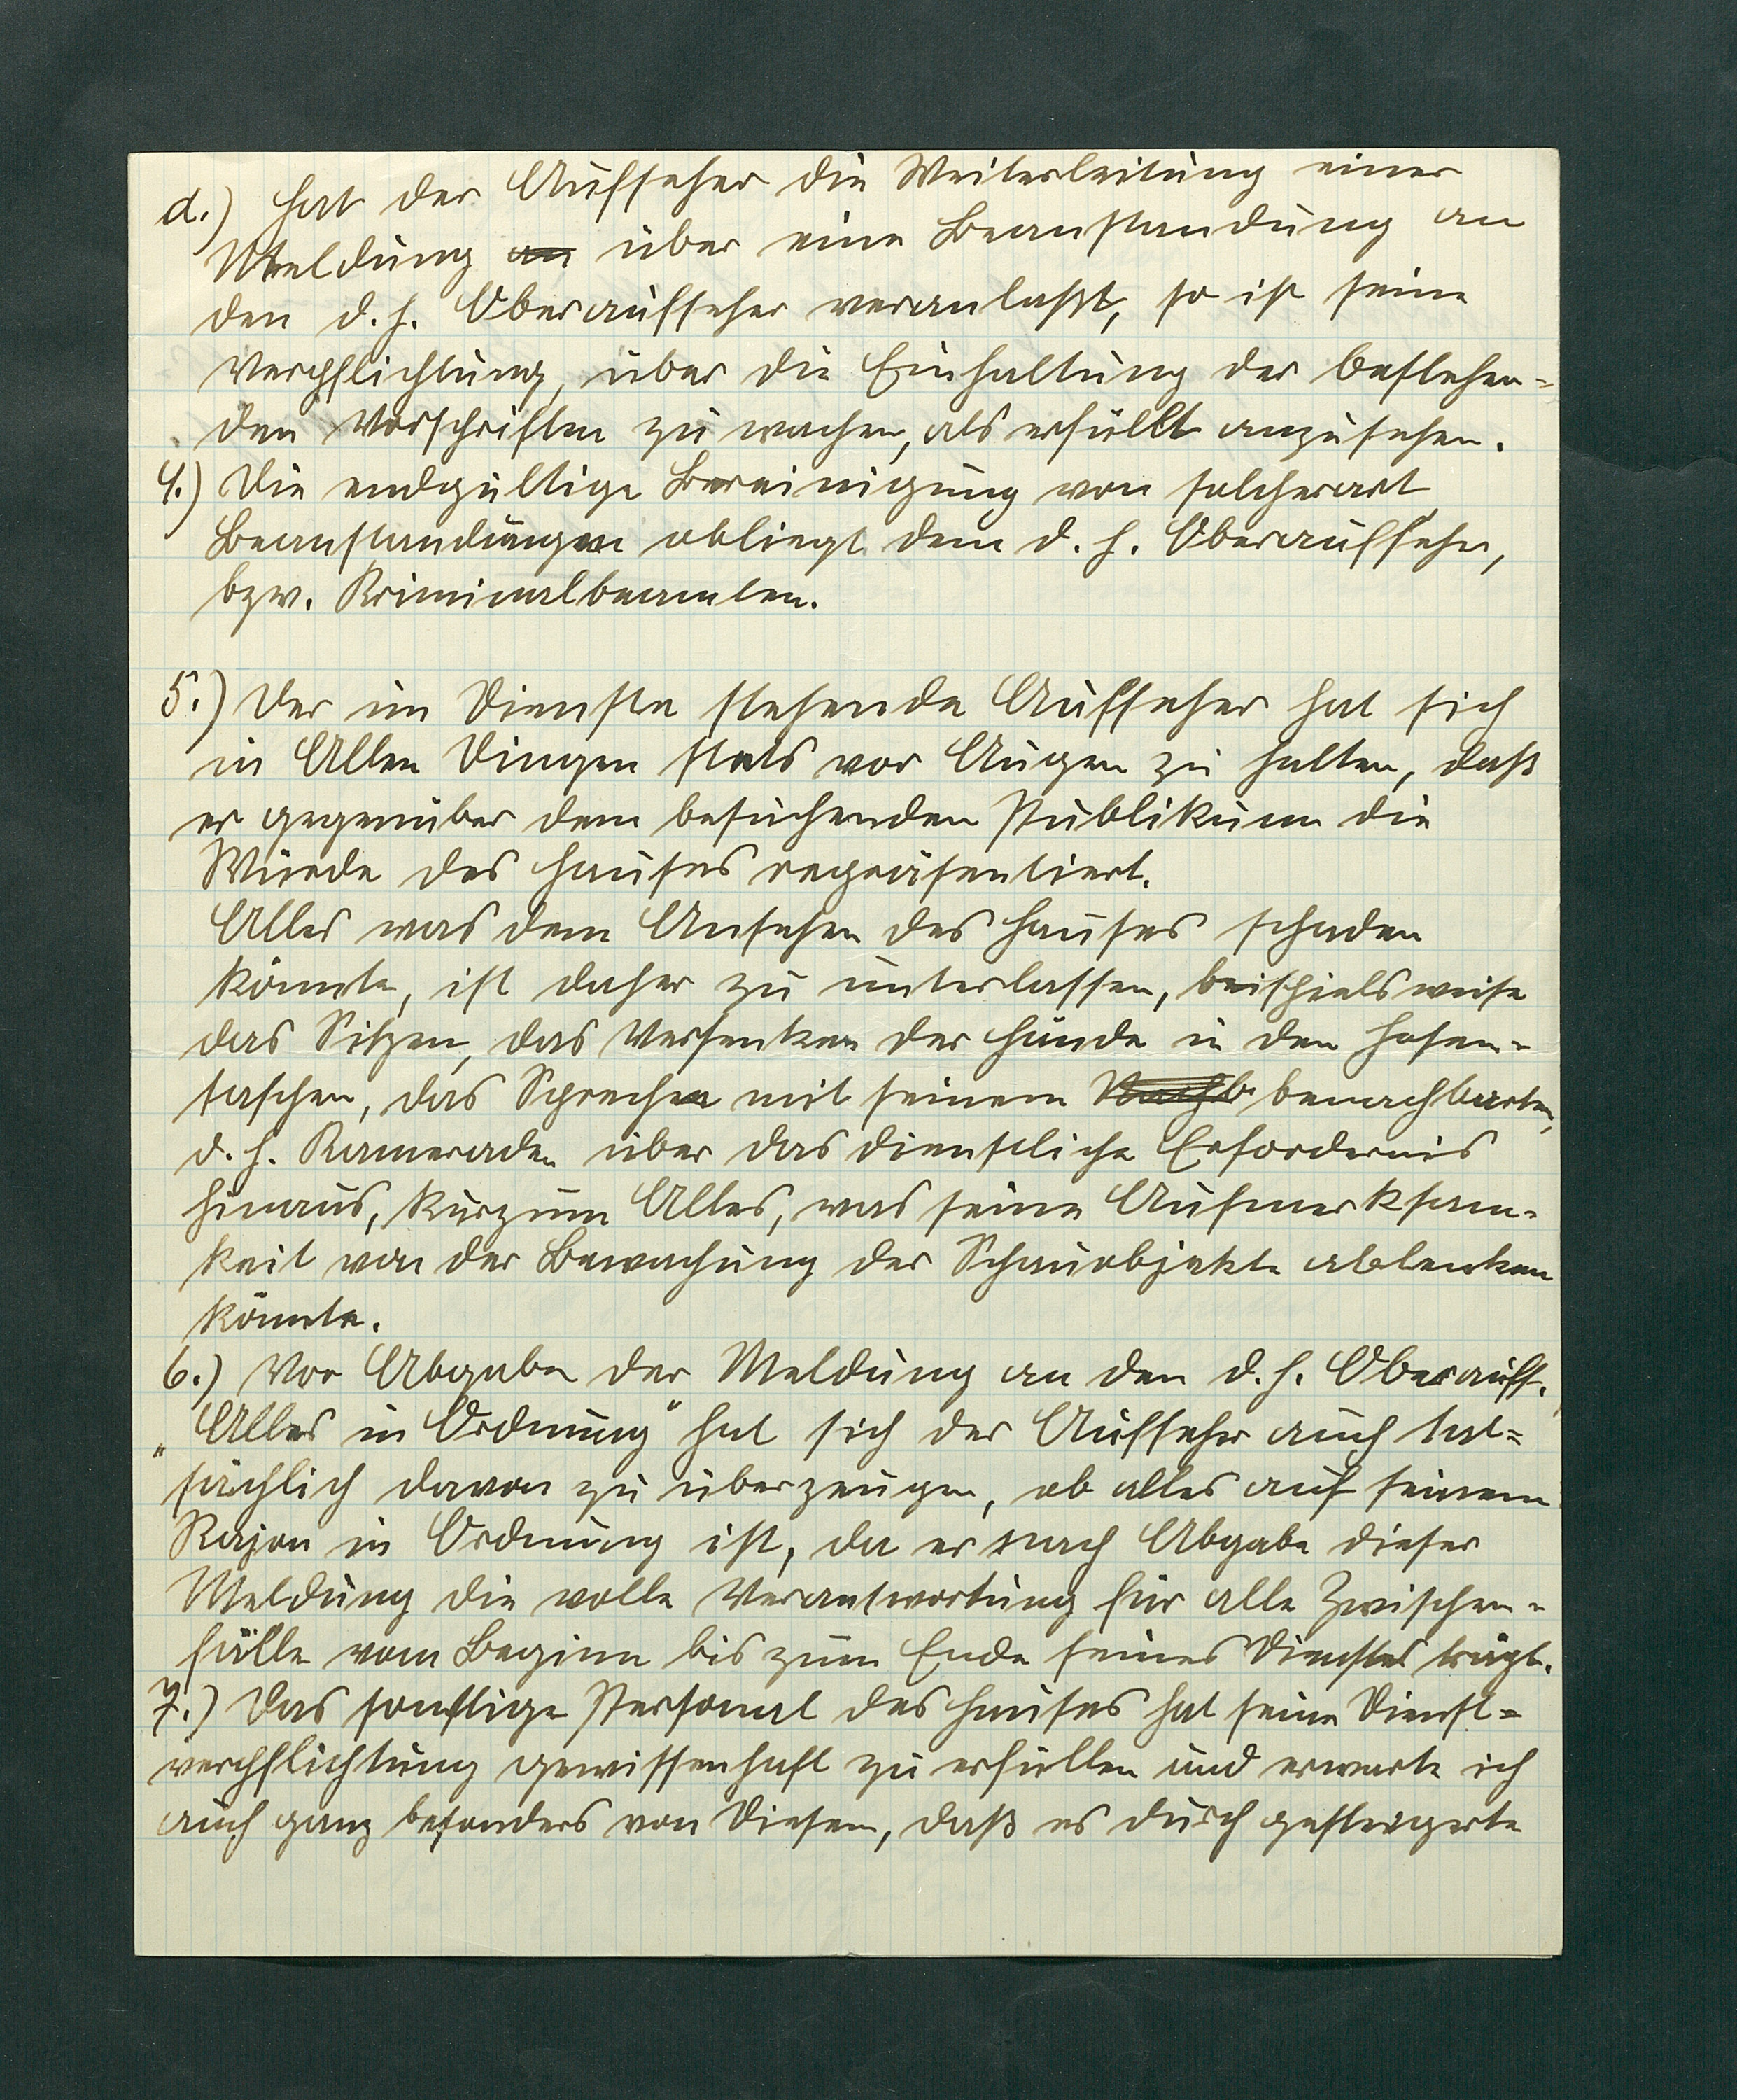 d.) hat der Aufseher die Weiterleitung einer
Meldung an über eine Beanstandung an
den d. h. Oberaufseher veranlaßt, so ist seine
Verpflichtung, über die Einhaltung der bestehen-
den Vorschriften zu wachen, als erfüllt anzusehen.
4.) Die endgültige Bereinigung von solcherart
Beanstandungen obliegt dem d. h. Oberaufseher,
bzw. Kriminalbeamten.
5.) Der im Dienste stehende Aufseher hat sich
in Allen Dingen stets vor Augen zu halten, daß
er gegenüber dem besuchenden Publikum die
Würde des Hauses repräsentiert.
Alles was dem Ansehen des Hauses schaden
könnte, ist daher zu unterlassen, beispielsweise
das Sitzen, das Versenken der Hände in den Hosen-
taschen, das Sprechen mit seinem Nachb benachbarten,
d. h. Kameraden über das dienstliche Erfordernis
hinaus, kurzum Alles, was seine Aufmerksam-
keit von der Bewachung der Schauobjekte ablenken
könnte.
6.) Vor Abgabe der Meldung an den d. h. Oberaufs.
„Alles in Ordnung" hat sich der Aufseher auch tat-
sächlich davon zu überzeugen, ob alles auf seinem
Rajon in Ordnung ist, da er nach Abgabe dieser
Meldung die volle Verantwortung für alle Zwischen-
fälle vom Beginn bis zum Ende seines Dienstes trägt.
7.) Das sonstige Personal des Hauses hat seine Dienst-
verpflichtung gewissenhaft zu erfüllen und erwarte ich
auch ganz besonders von Diesem, daß es durch gesteigerte